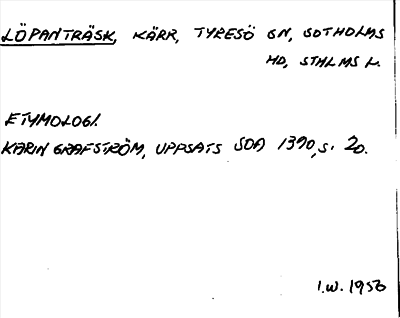 LÖPANTRÄSK, KÄRR, TYRESÖ SN, SOTHOLMS
HD, STHLMS L.
ETYMOLOGI.
KARIN GRAFSTRÖM, UPPSATS SOA 1390, S. 20.
I.W. 1956